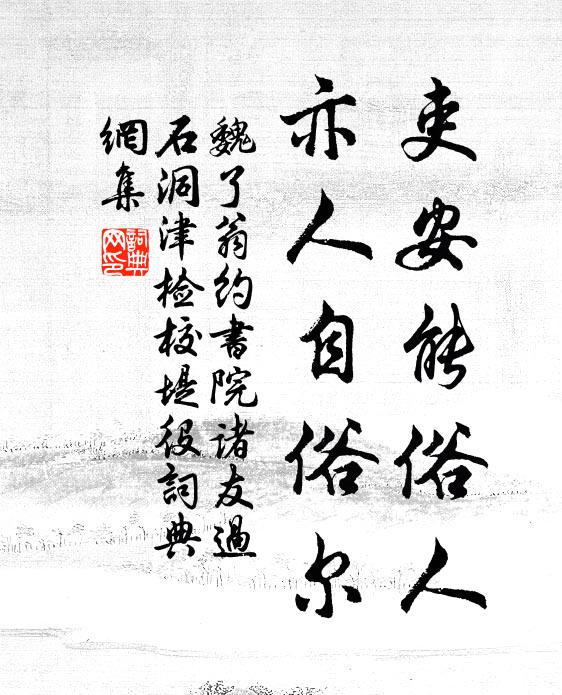 吏安能俗人
亦人自俗尔
魏了翁约書院诸友過
石洞津检校堤役詞典
網集
詞典
网印